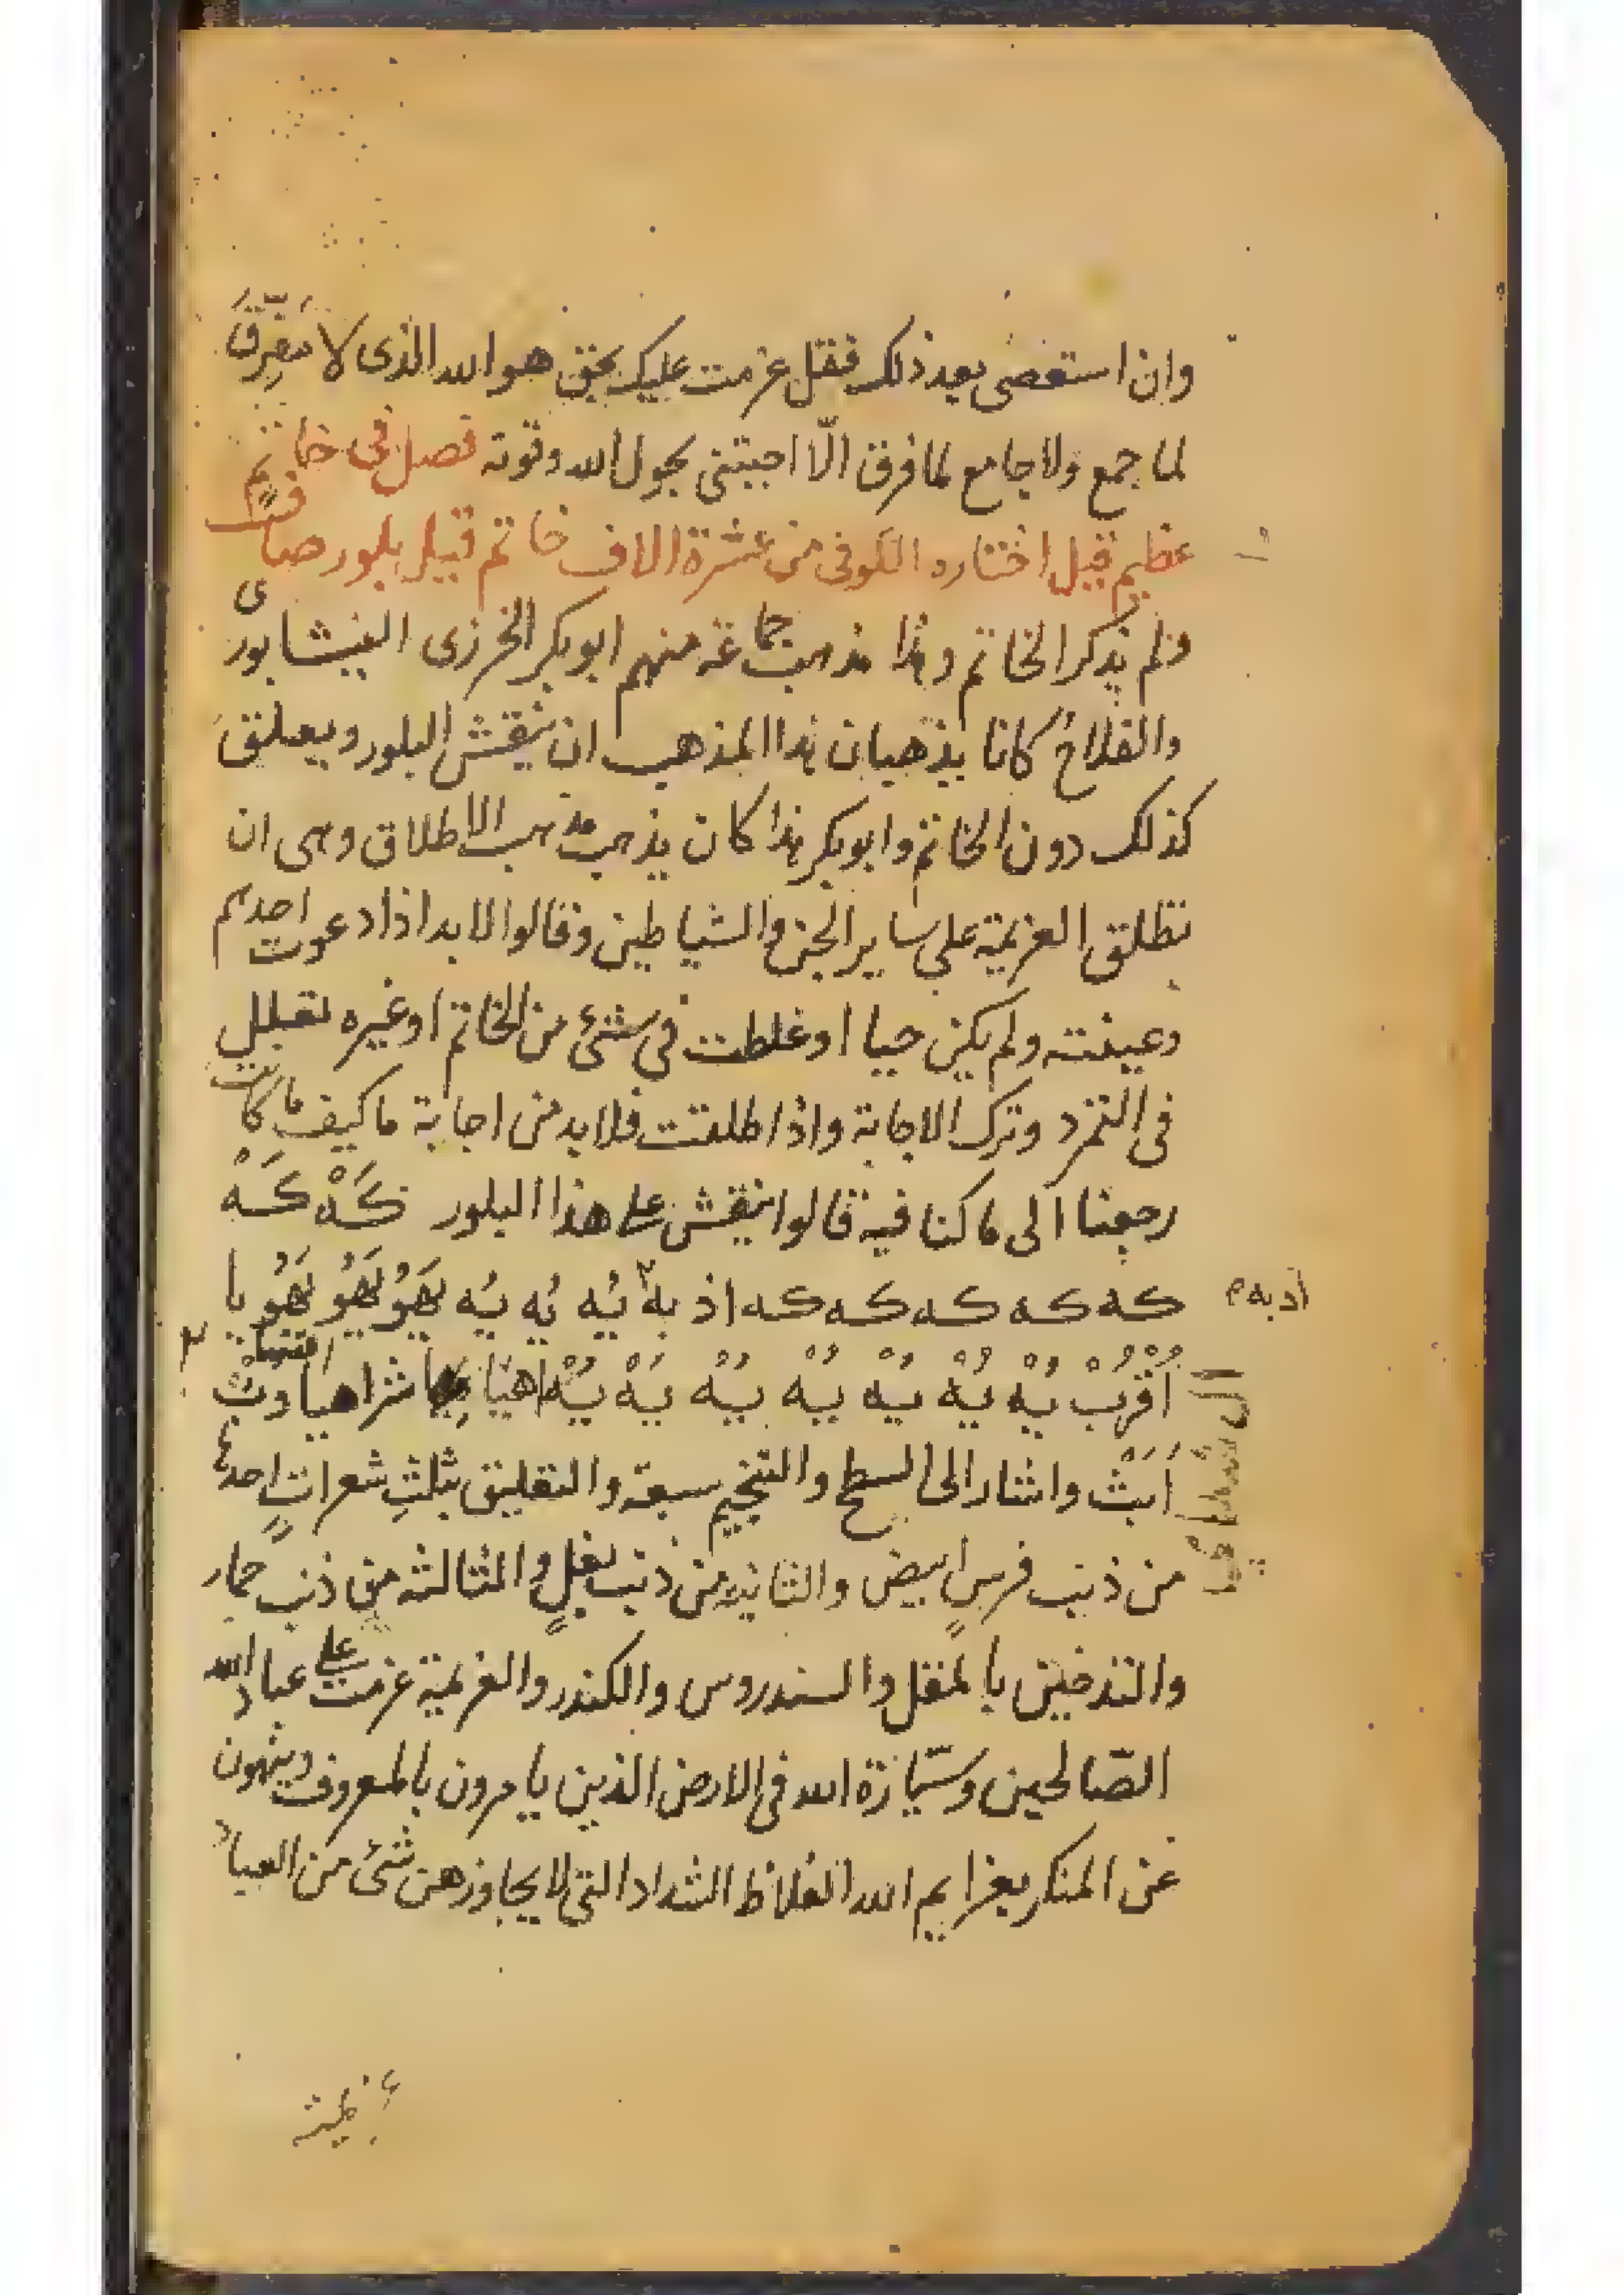 وان استعصى بعد ذلك فقل عزمت عليك بحق هو الله الذى لا مفرّق
لما جمع ولا جامع لما فرق الّا اجبتنى بحول الله وقوته فصل فى خاتم
عظيم قيل اختاره الكوفى من عشرة الاف خاتم قيل بلور صاف
ولم يذكر الخاتم وهذا مذهب جماعة منهم ابوبكر الخرزى النيشابورى
والفلاح كانا يذهبان هذا المذهب ان ينقش البلور ويعلق
كذلك دون الخاتم وابوبكر هذا كان يذهب مذهب الاطلاق وهى ان
تطلق العزيمة على ساير الجن والشياطين وقالوا لابد اذا دعوت احدهم
وعينته ولم يكن حيا او غلطت فى شئ من الخاتم او غيره تعلل
فى التمرد وترك الاجابة واذا طلقت فلا بد من اجابة ما كيف ما كانت
رجعنا الى ما كنا فيه قالوا ينقش على هذا البلور كَهْ كَهْ
كه كه كه كه كه اذ به يُه يُه يُه يَهُو يَهُو يَهُو يا
ادبه م
اُقْرُبْ يُهْ يُهْ يُهْ يُهْ يُهْ يُهْ يَهْ يُهْ اهيا شراهيا
اَبَثْ واشار الى السطح والتنجيم سبعة والتعليق بثلثِ شعراتٍ احدها
من ذنب فرسٍ ابيض والثانيه من ذنب بغلٍ والثالثه من ذنب حمار
والتدخين بالمقل والسندروس والكندر والعزيمة عزمت على عباد الله
الصّالحين وسيّارة الله فى الارض الذين يامرون بالمعروف وينهون
عن المنكر بعزايم الله الغلاظ الشداد التى لا يجاوزهن شئ من العباد